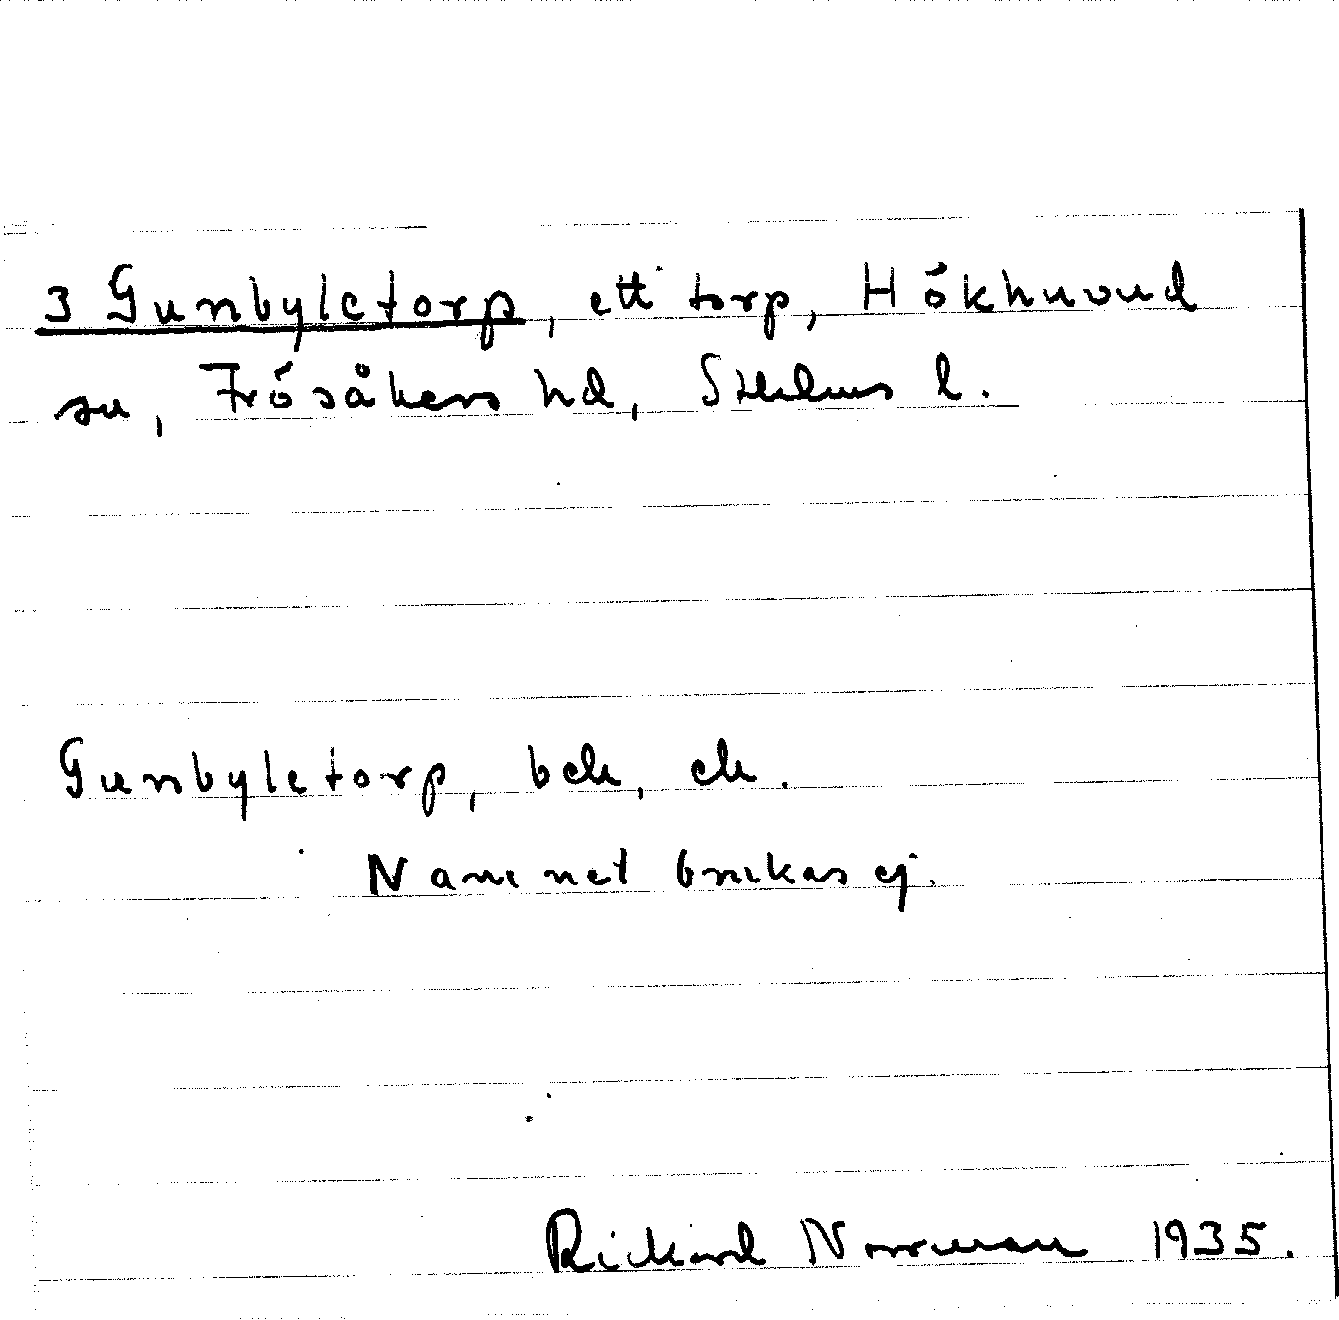 3 Gunbyletorp, ett torp, Hökhuvud
sn, Frösåkers hd, Sthlms l.
Gunbyletorp, bek, ek.
Namnet brukas ej.
Rickard Norrman 1935.